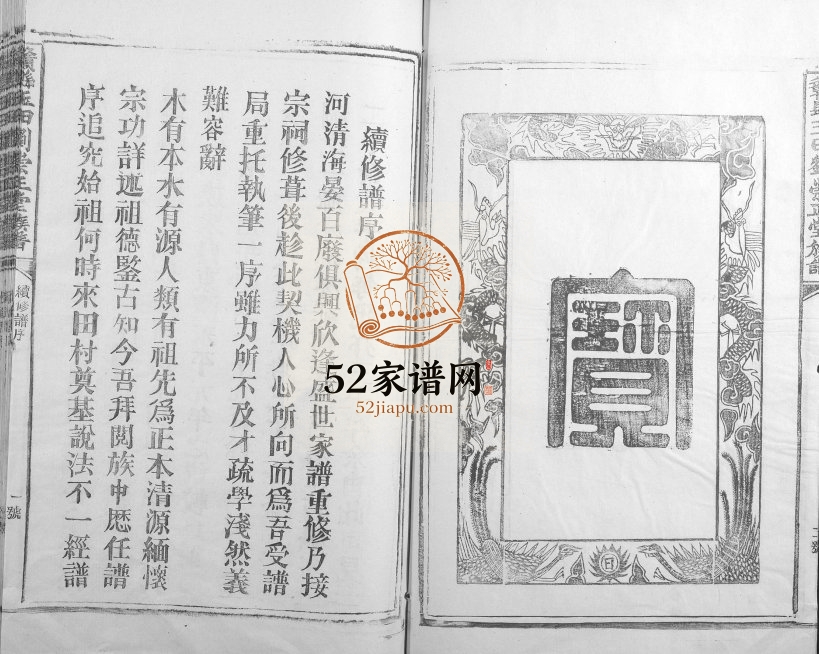 寶
續修譜序
河清海晏百廢俱興欣逢盛世家譜重修乃接
宗祠修葺後趁此契機人心所向而爲吾受譜
局重托執筆一序雖力所不及才疏學淺然義
難容辭
木有本水有源人類有祖先爲正本清源緬懷
宗功詳述祖德鑒古知今吾拜閱族中歷任譜
序追究始祖何時來田村奠基說法不一經譜
續修譜序
一號
52家谱网
52jiapu.com